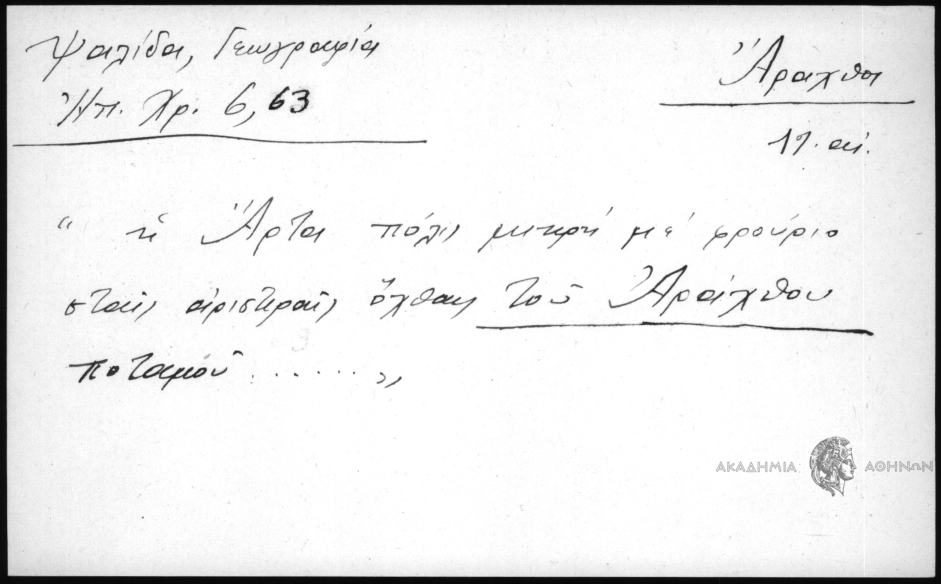 Ψαλίδα, Γεωγραφία
Ἠπ. Χρ. 6, 63
Ἄραχθοι
17. αἰ.
" ἡ Ἄρτα πόλις μικρή μέ φρούριο
σταῖς ἀριστεραῖς ὄχθαις τοῦ Ἀράχθου
ποταμοῦ ....... „
ΑΚΑΔΗΜΙΑ ΑΘΗΝΩΝ